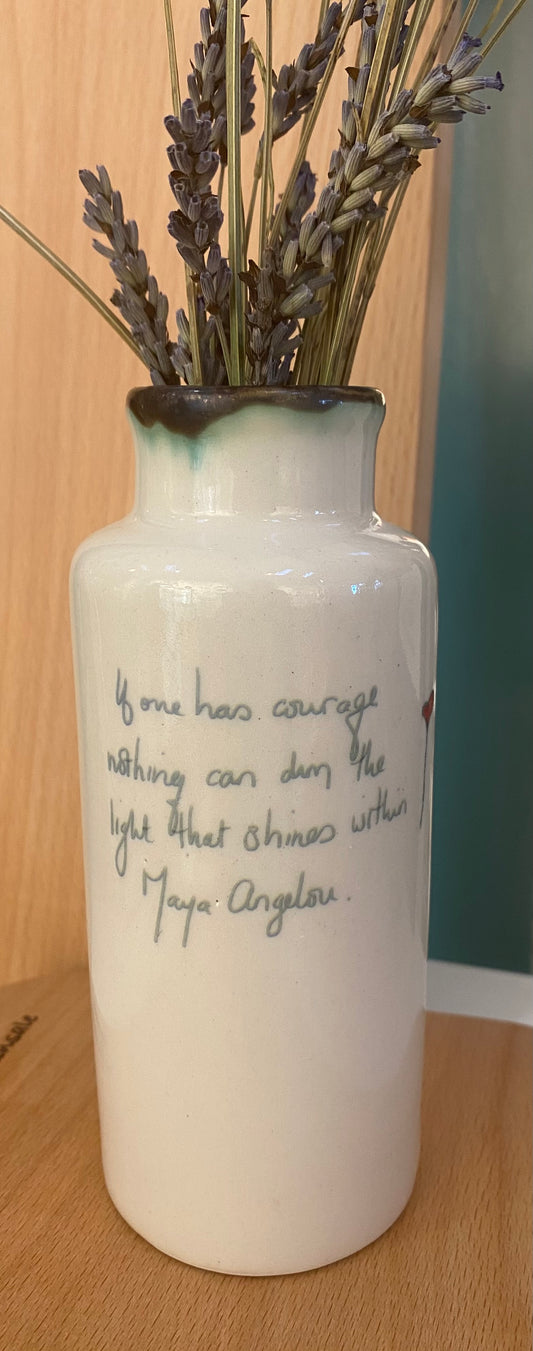 If one has courage
nothing can dim the
light that shines within
Maya Angelou.